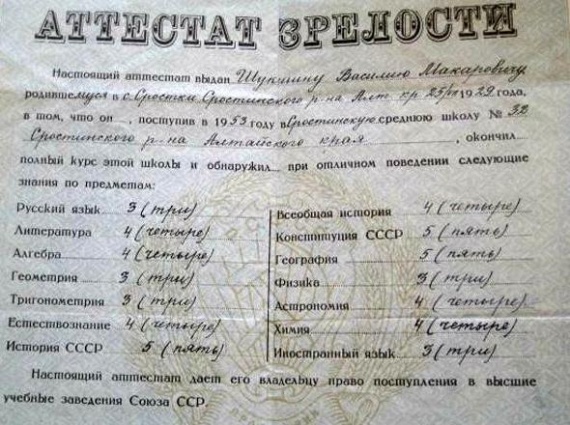 АТТЕСТАТ ЗРЕЛОСТИ
Настоящий аттестат выдан Шукшину Василию Макаровичу
родившемуся в с. Сростки Сростинского р-на Алт. кр. 25/VII 1929 года,
в том, что он , поступив в 1953 году в Сростинскую среднюю школу № 32
Сростинского р-на Алтайского края , окончил
полный курс этой школы и обнаружил при отличном поведении следующие
знания по предметам:
Русский язык 3 (три)
Литература 4 (четыре)
Алгебра 4 (четыре)
Геометрия 3 (три)
Тригонометрия 3 (три)
Естествознание 4 (четыре)
История СССР 5 (пять)
Всеобщая история 4 (четыре)
Конституция СССР 5 (пять)
География 5 (пять)
Физика 3 (три)
Астрономия 4 (четыре)
Химия 4 (четыре)
Иностранный язык 3 (три)
Настоящий аттестат дает его владельцу право поступления в высшие
учебные заведения Союза ССР.